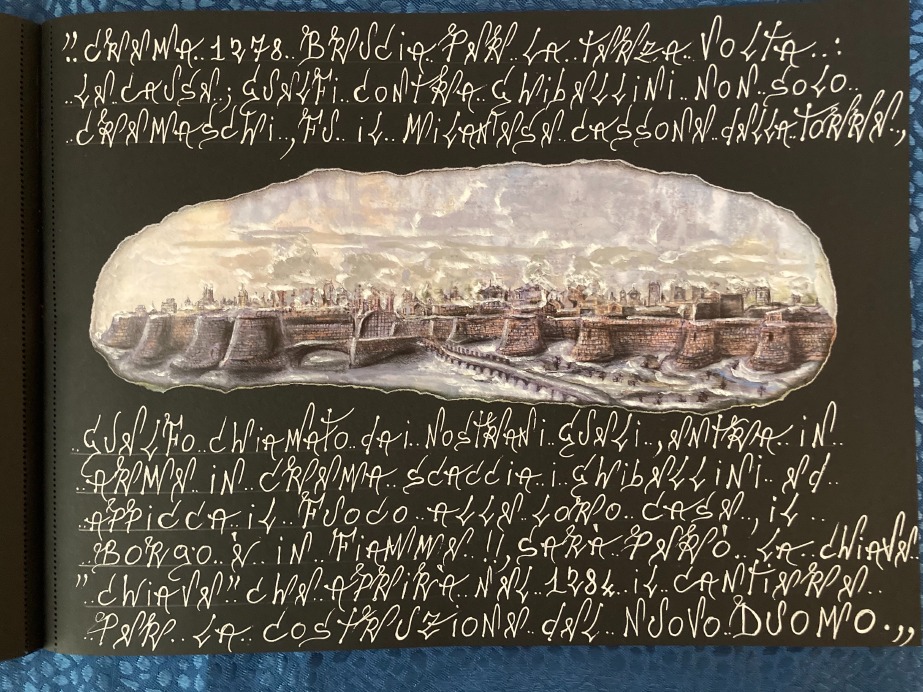 „CREMA 1278. BRUCIA PER LA TERZA VOLTA..:
LE CAUSE; GUELFI CONTRA GHIBELLINI NON SOLO
CREMASCHI, FU IL MILANESE CASSONE DELLA TORRE,
GUELFO CHIAMATO DAI NOSTRANI GUELI, ENTRA IN
ARME IN CREMA SCACCIA I GHIBELLINI ED
APPICCA IL FUOCO ALLE LORO CASE, IL
BORGO È IN FIAMME!!, SARÀ PERÒ LA CHIAVE
"CHIAVE" CHE APRIRÀ NEL 1284 IL CANTIERE
PER LA COSTRUZIONE DEL NUOVO DUOMO.„